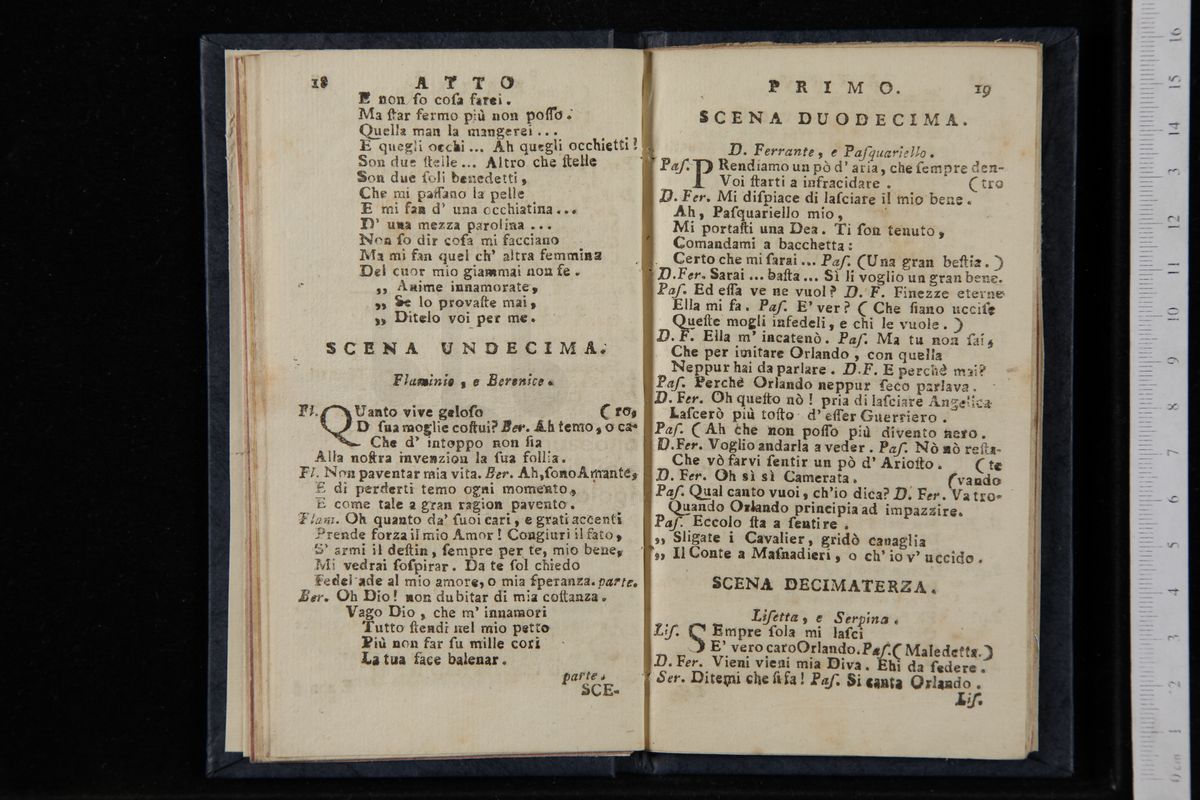 18 ATTO
E non ſo coſa farei.
Ma ſtar fermo più non poſſo.
Quella man la mangerei ...
E quegli occhi ... Ah quegli occhietti!
Son due ſtelle ... Altro che ſtelle
Son due ſoli benedetti,
Che mi paſſano la pelle
E mi fan d' una occhiatina ...
D' una mezza parolina ...
Non ſo dir coſa mi facciano
Ma mi fan quel ch' altra femmina
Del cuor mio giammai non fe.
„ Anime innamorate,
„ Se lo provaſte mai,
„ Ditelo voi per me.
SCENA UNDECIMA.
Flaminio, e Berenice.
Fl. QUanto vive geloſo (ro,
D ſua moglie coſtui? Ber. Ah temo, o ca-
Che d' intoppo non ſia
Alla noſtra invenzion la ſua follia.
Fl. Non paventar mia vita. Ber. Ah, ſono Amante,
E di perderti temo ogni momento,
E come tale a gran ragion pavento.
Flam. Oh quanto da' ſuoi cari, e grati accenti
Prende forza il mio Amor! Congiuri il fato,
S' armi il deſtin, ſempre per te, mio bene,
Mi vedrai ſoſpirar. Da te ſol chiedo
Fedeltade al mio amore, o mia ſperanza. parte.
Ber. Oh Dio! non dubitar di mia coſtanza.
Vago Dio, che m' innamori
Tutto ſtendi nel mio petto
Più non far ſu mille cori
La tua face balenar.
parte.
SCE-
PRIMO. 19
SCENA DUODECIMA.
D. Ferrante, e Paſquariello.
Paſ. PRendiamo un pò d' aria, che ſempre den-
Voi ſtarti a infracidare. (tro
D. Fer. Mi diſpiace di laſciare il mio bene.
Ah, Paſquariello mio,
Mi portaſti una Dea. Ti ſon tenuto,
Comandami a bacchetta:
Certo che mi ſarai ... Paſ. (Una gran beſtia.)
D. Fer. Sarai ... baſta ... Sì li voglio un gran bene.
Paſ. Ed eſſa ve ne vuol? D. F. Finezze eterne
Ella mi fa. Paſ. E' ver? (Che ſiano ucciſe
Queſte mogli infedeli, e chi le vuole.)
D. F. Ella m' incatenò. Paſ. Ma tu non ſai,
Che per imitare Orlando, con quella
Neppur hai da parlare. D. F. E perchè mai?
Paſ. Perchè Orlando neppur ſeco parlava.
D. Fer. Oh queſto nò! pria di laſciare Angelica
Laſcerò più toſto d' eſſer Guerriero.
Paſ. (Ah che non poſſo più divento nero.
D. Fer. Voglio andarla a veder. Paſ. Nò nò reſta-
Che vò farvi ſentir un pò d' Arioſto. (te
D. Fer. Oh sì sì Camerata. (vando
Paſ. Qual canto vuoi, ch'io dica? D. Fer. Va tro-
Quando Orlando principia ad impazzire.
Paſ. Eccolo ſta a ſentire.
„ Sligate i Cavalier, gridò canaglia
„ Il Conte a Maſnadieri, o ch' io v' uccido.
SCENA DECIMATERZA.
Liſetta, e Serpina.
Liſ. SEmpre ſola mi laſci
E' vero caro Orlando. Paſ. (Maledetta.)
D. Fer. Vieni vieni mia Diva. Ehi da ſedere.
Ser. Ditemi che ſi fa! Paſ. Si canta Orlando.
Liſ.
0 cm 1 2 3 4 5 6 7 8 9 10 11 12 13 14 15 16